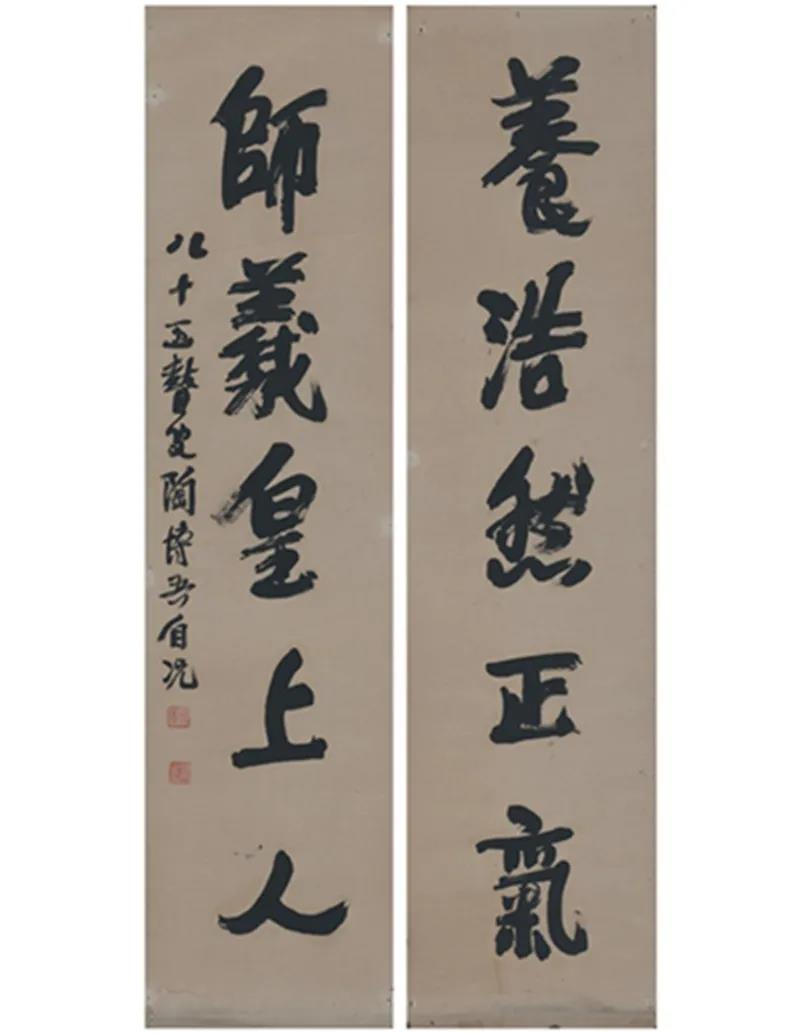 養浩然正氣
師羲皇上人
八十五瞽叟陶博吾自况